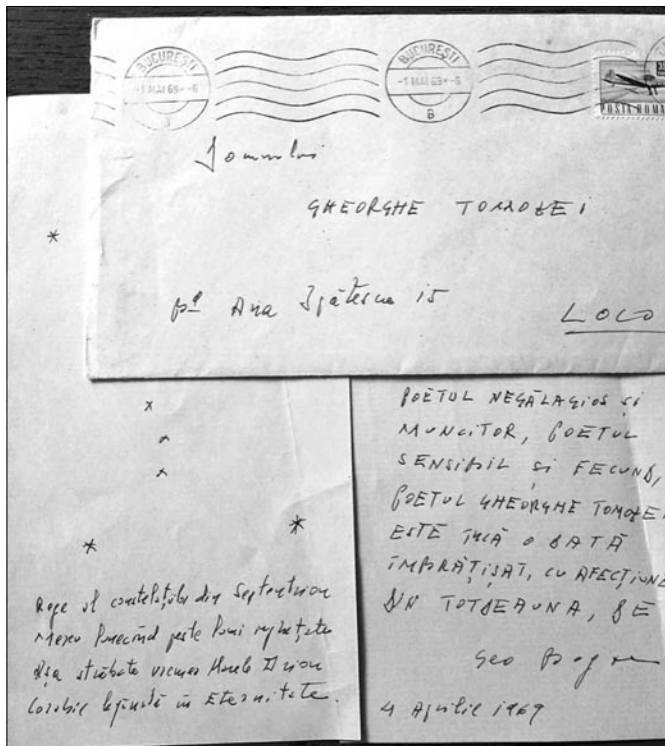 BUCUREȘTI
-1 MAI 69--6
BUCUREȘTI
-1 MAI 69--6
B
POSTA ROMA
Domnului
GHEORGHE TOMOZEI
Bd Ana Ipătescu 15
LOCO
Rege al constelațiilor din Septentrion
Mereu lunecînd peste lumi înghețate
Așa străbate vremea Marele Orion
Corabie legănată în Eternitate.
POETUL NEGĂLAGIOS ȘI
MUNCITOR, POETUL
SENSIBIL ȘI FECUND,
POETUL GHEORGHE TOMOZEI
ESTE ÎNCĂ O DATĂ
ÎMBRĂȚIȘAT, CU AFECȚIUNE
DIN TOTDEAUNA, DE
Geo Bogza
4 Aprilie 1969